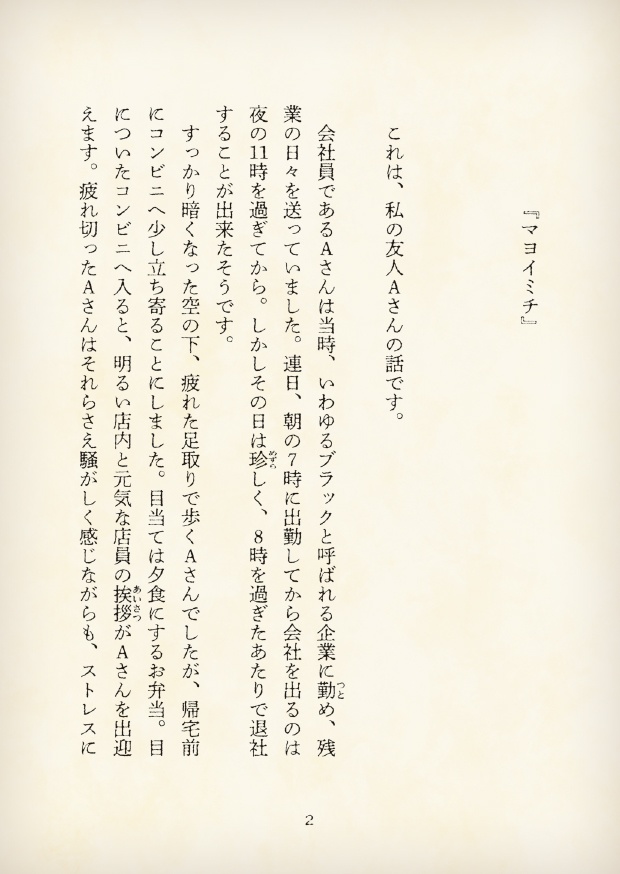 『マヨイミチ』
これは、私の友人Aさんの話です。
会社員であるAさんは当時、いわゆるブラックと呼ばれる企業に勤め、残
業の日々を送っていました。連日、朝の7時に出勤してから会社を出るのは
夜の11時を過ぎてから。しかしその日は珍しく、8時を過ぎたあたりで退社
することが出来たそうです。
すっかり暗くなった空の下、疲れた足取りで歩くAさんでしたが、帰宅前
にコンビニへ少し立ち寄ることにしました。目当ては夕食にするお弁当。目
についたコンビニへ入ると、明るい店内と元気な店員の挨拶がAさんを出迎
えます。疲れ切ったAさんはそれらさえ騒がしく感じながらも、ストレスに
つと
めずら
あいさつ
2